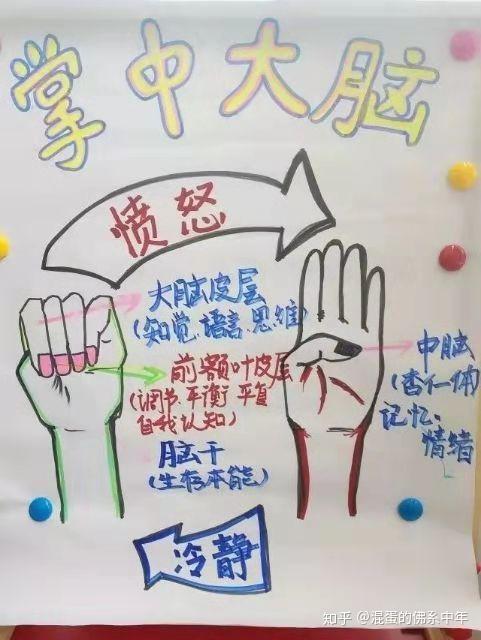 掌中大脑
愤怒
大脑皮层
(知觉、语言、思维)
前额叶皮层
(调节 平衡 平息
自我认知)
脑干
(生存本能)
中脑
(杏仁体)
记忆、
情绪
冷静
知乎 @混蛋的佛系中年